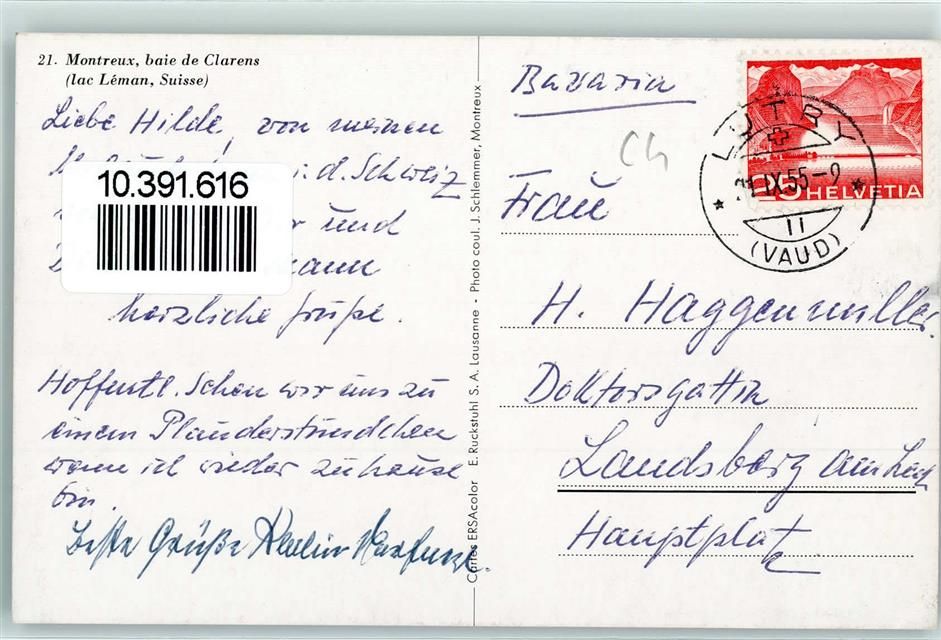 21. Montreux, baie de Clarens
(lac Léman, Suisse)
Liebe Hilde, von meinen
i. d. Schweiz
10.391.616
und
herzliche Grüße.
Hoffentl. sehen wir uns zu
einem Plauderstündchen
wenn ich wieder zuhause
bin.
Beste Grüße
Cartes ERSAcolor E. Ruckstuhl S. A. Lausanne - Photo coul. J. Schlemmer, Montreux
Bavaria
Ch
LUTRY
IX.55-9
(VAUD)
25 HELVETIA
Frau
H. Haggenmüller
Doktorsgattin
Landsberg am Lech
Hauptplatz